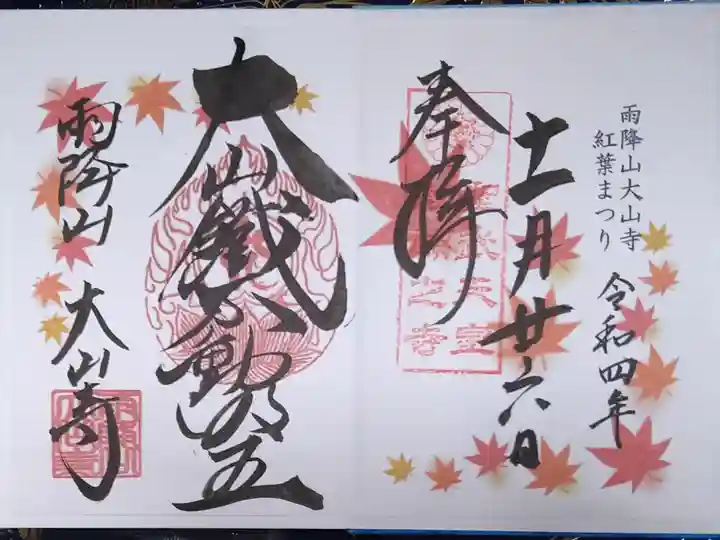 雨降山大山寺
紅葉まつり
令和四年
十一月廿六日
奉拝
大山鐵不動明王
雨降山 大山寺